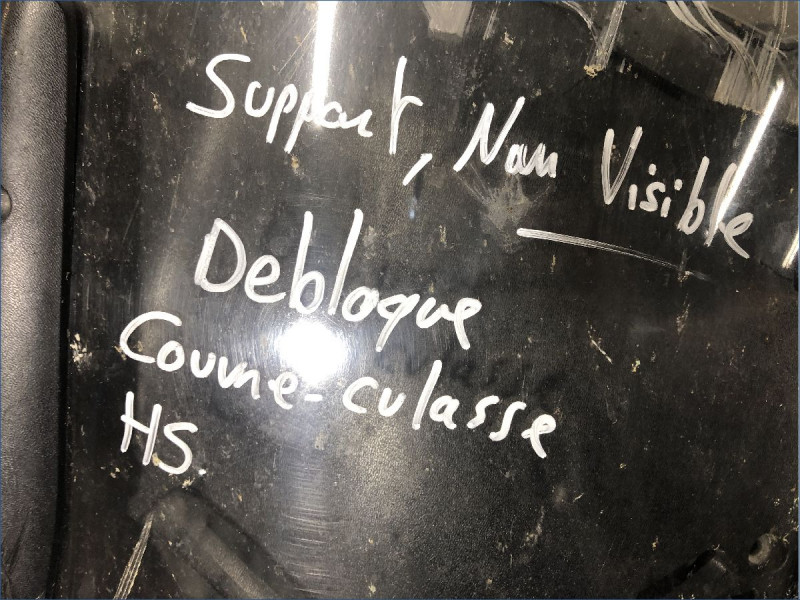 Support, Non Visible
Debloque
Couvre-culasse
HS.